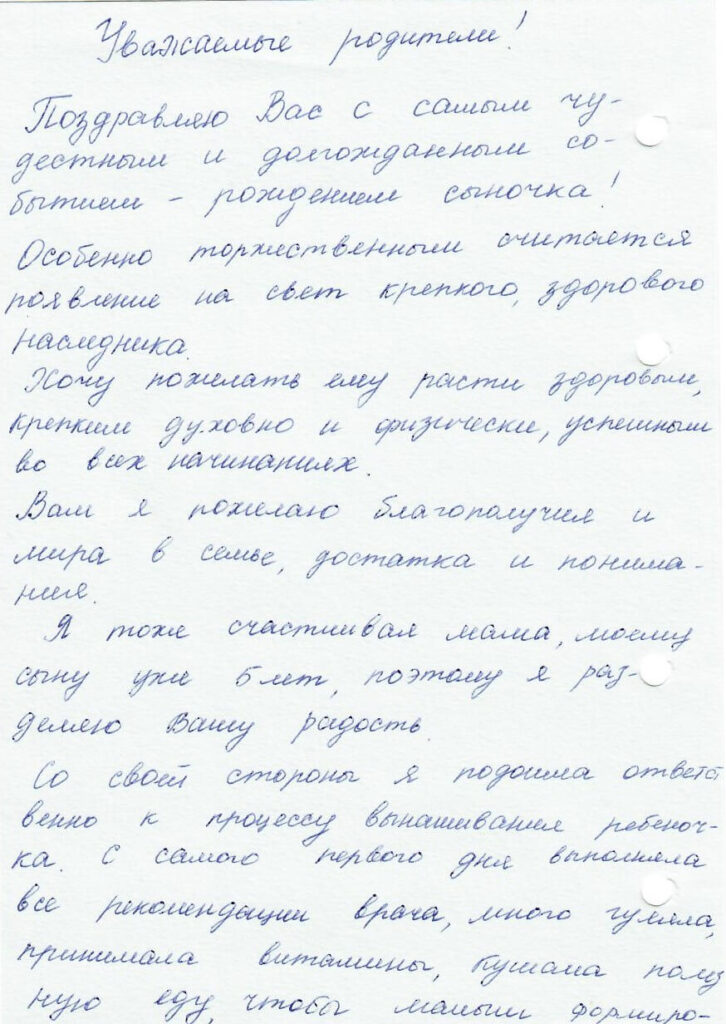 Уважаемые родители!
Поздравляю Вас с самым чу-
дестным и долгожданным со-
бытием - рождением сыночка!
Особенно торжественным считается
появление на свет крепкого, здорового
наследника.
Хочу пожелать ему расти здоровым,
крепким духовно и физически, успешным
во всех начинаниях.
Вам я пожелаю благополучия и
мира в семье, достатка и понима-
ния.
Я тоже счастливая мама, моему
сыну уже 5 лет, поэтому я раз-
деляю Вашу радость.
Со своей стороны я подошла ответст
венно к процессу вынашивания ребеноч-
ка. С самого первого дня выполняла
все рекомендации врача, много гуляла,
принимала витамины, кушала полез
ную еду, чтобы малыш формиро-